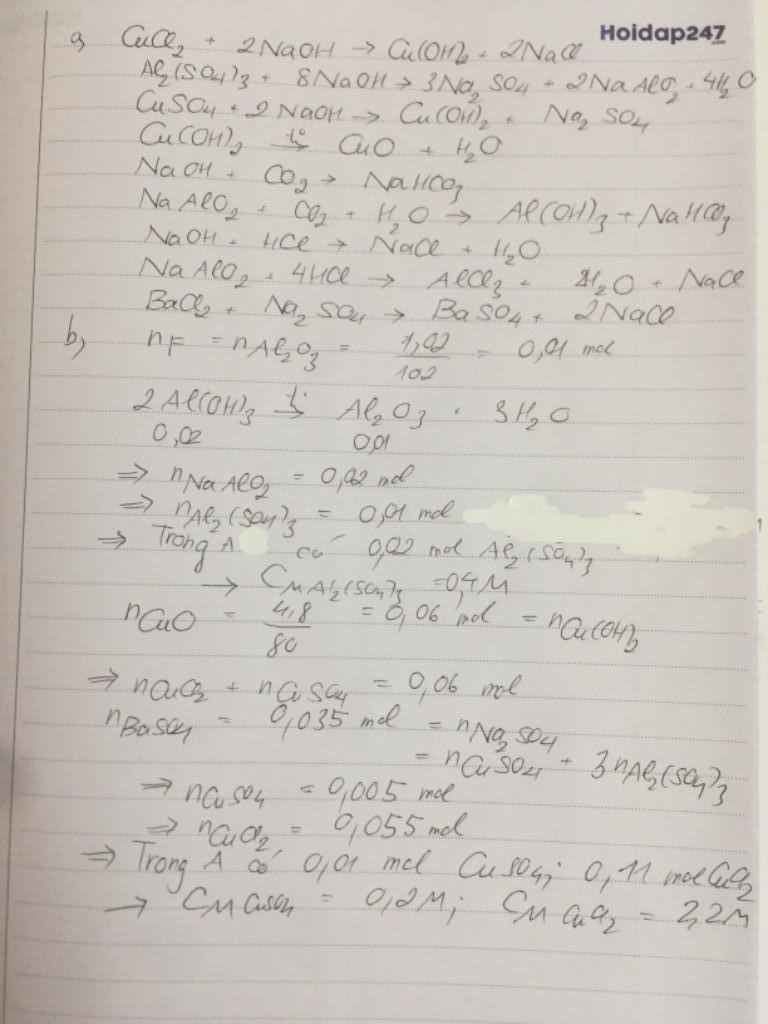 Hoidap247
a, CuCl₂ + 2NaOH → Cu(OH)₂ + 2NaCl
Al₂(SO₄)₃ + 8NaOH → 3Na₂SO₄ + 2NaAlO₂ + 4H₂O
CuSO₄ + 2NaOH → Cu(OH)₂ + Na₂SO₄
Cu(OH)₂ →t° CuO + H₂O
NaOH + CO₂ → NaHCO₃
NaAlO₂ + CO₂ + H₂O → Al(OH)₃ + NaHCO₃
NaOH + HCl → NaCl + H₂O
NaAlO₂ + 4HCl → AlCl₃ + 2H₂O + NaCl
BaCl₂ + Na₂SO₄ → BaSO₄ + 2NaCl
b, nF = nAl₂O₃ = 1,02/102 = 0,01 mol
2Al(OH)₃ →t° Al₂O₃ + 3H₂O
0,02 0,01
⇒ nNaAlO₂ = 0,02 mol
⇒ nAl₂(SO₄)₃ = 0,01 mol
⇒ Trong A có 0,02 mol Al₂(SO₄)₃
→ CM Al₂(SO₄)₃ = 0,4M
nCuO = 4,8/80 = 0,06 mol = nCu(OH)₂
⇒ nCuCl₂ + nCuSO₄ = 0,06 mol
nBaSO₄ = 0,035 mol = nNa₂SO₄
= nCuSO₄ + 3nAl₂(SO₄)₃
⇒ nCuSO₄ = 0,005 mol
⇒ nCuCl₂ = 0,055 mol
⇒ Trong A có 0,01 mol CuSO₄; 0,11 mol CuCl₂
→ CM CuSO₄ = 0,2M; CM CuCl₂ = 2,2M